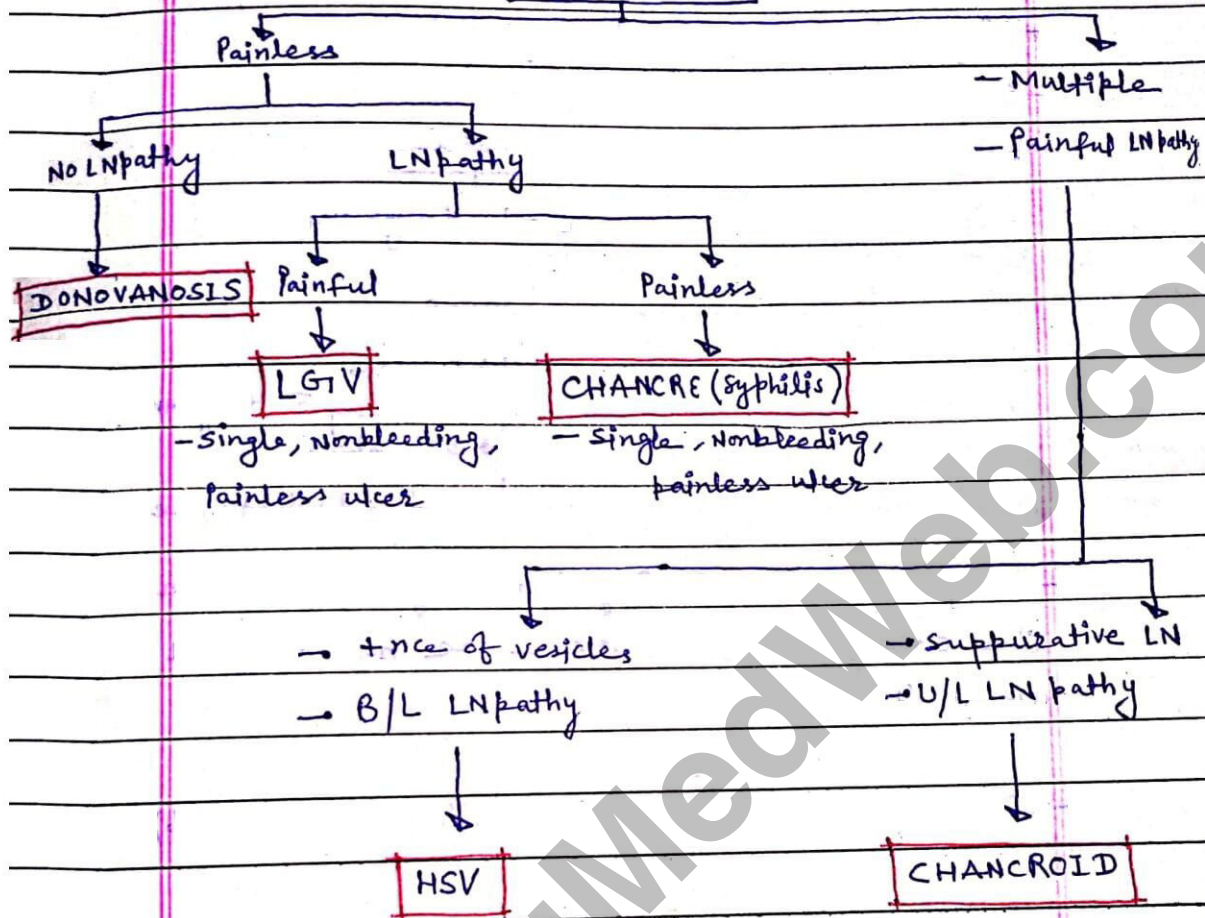 Painless
- Multiple
- Painful LNpathy
No LNpathy
LNpathy
Painful
Painless
DONOVANOSIS
LGV
CHANCRE (Syphilis)
- Single, Nonbleeding,
Painless ulcer
- Single, Nonbleeding,
painless ulcer
→ +nce of vesicles
→ B/L LNpathy
→ suppurative LN
→ U/L LN pathy
HSV
CHANCROID
MedWeb.co